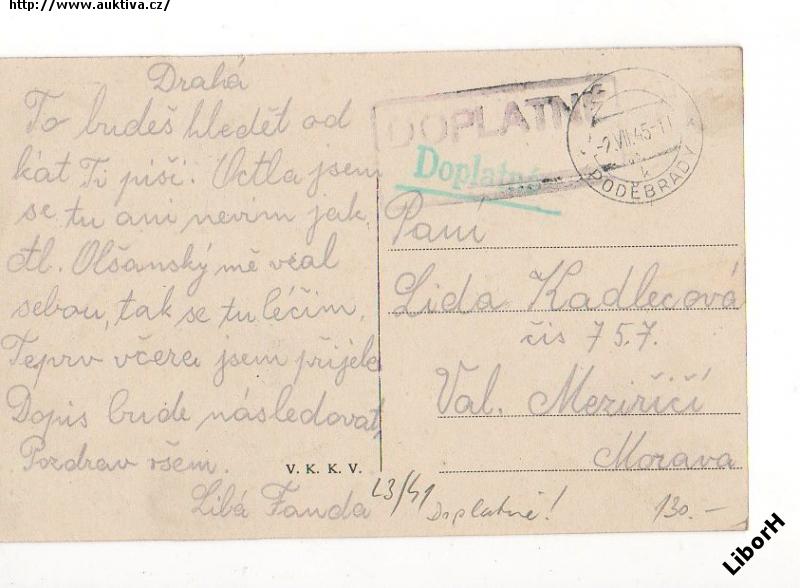 http://www.auktiva.cz/
Drahá
To budeš hledět od
kat Ti píši. Octla jsem
se tu ani nevím jak,
Ml. Olšanský mě vzal
sebou, tak se tu léčím.
Teprv včera jsem přijela
Dopis bude následovat,
Pozdrav všem.
Líbá Fanda
V. K. K. V.
DOPLATNÉ
Doplatné
-2.VII.45-17
PODĚBRADY
Paní
Lida Kadlecová
čis 757.
Val. Meziřičí
Morava
L3/41
Doplatné!
130.-
LiborH